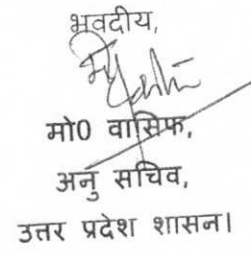 भवदीय,
मो0 वासिफ,
अनु सचिव,
उत्तर प्रदेश शासन।